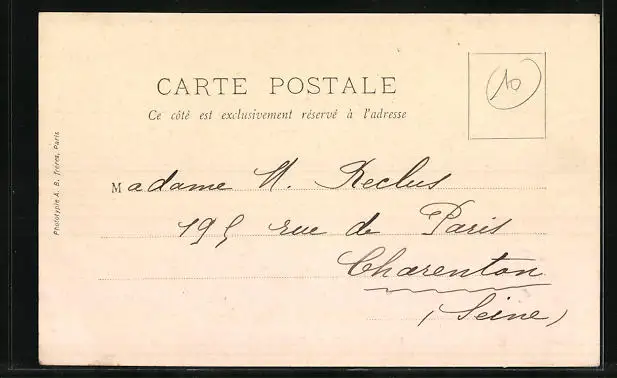 CARTE POSTALE
Ce côté est exclusivement réservé à l'adresse
10
Phototypie A. B. frères, Paris
Madame M. Reclus
195 rue de Paris
Charenton
(Seine)